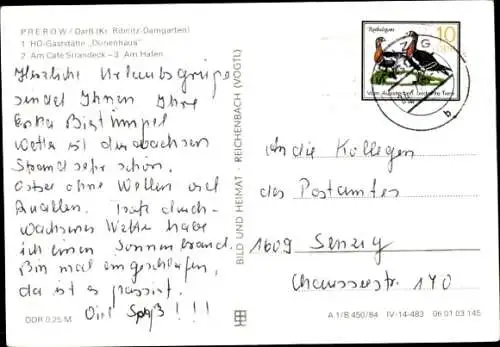 PREROW/Darß (Kr. Ribnitz-Damgarten)
1 HO-Gaststätte „Dünenhaus"
2 Am Café Strandeck – 3 Am Hafen
Herzliche Urlaubsgrüße
sendet Ihnen Ihre
Erka
Wetter ist durchwachsen
Strand sehr schön.
Ostsee ohne Wellen und
Quallen. Trotz durch-
wachsenen Wetter habe
ich einen Sonnenbrand.
Bin mal eingeschlafen,
da ist es passiert.
Viel Spaß !!!
DDR 0,25 M
BILD UND HEIMAT · REICHENBACH (VOGTL)
Rothalsgans
10
DDR
Vom Aussterben bedrohte Tiere
An die Kollegen
des Postamtes
1609 Senzig
Chausseestr. 170
A 1/B 450/84 IV-14-483 96 01 03 145